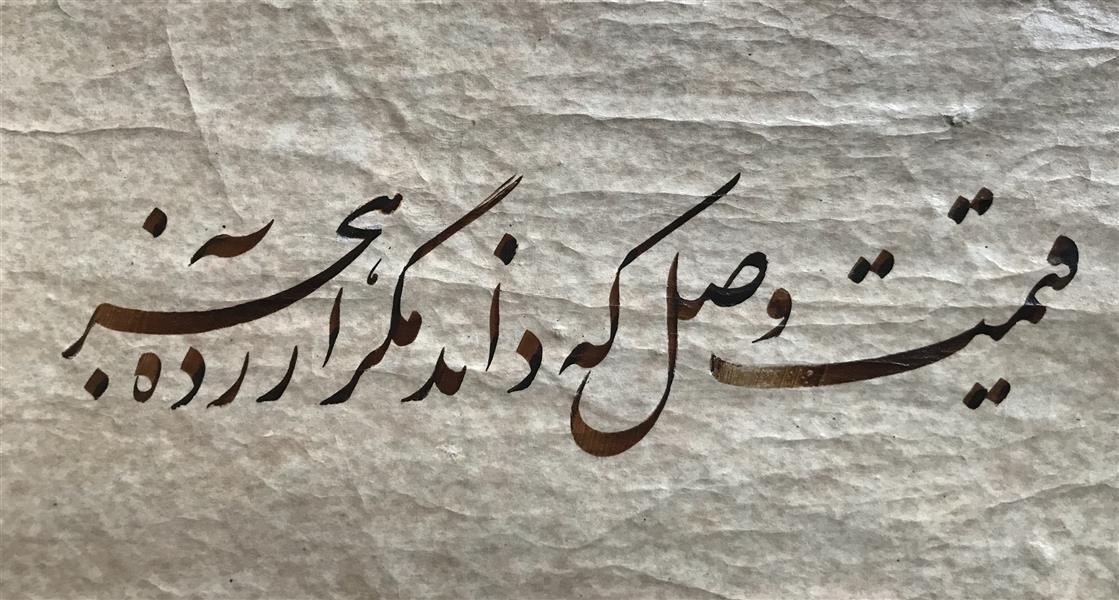 قیمت وصل که داند مگر آزرده هجر